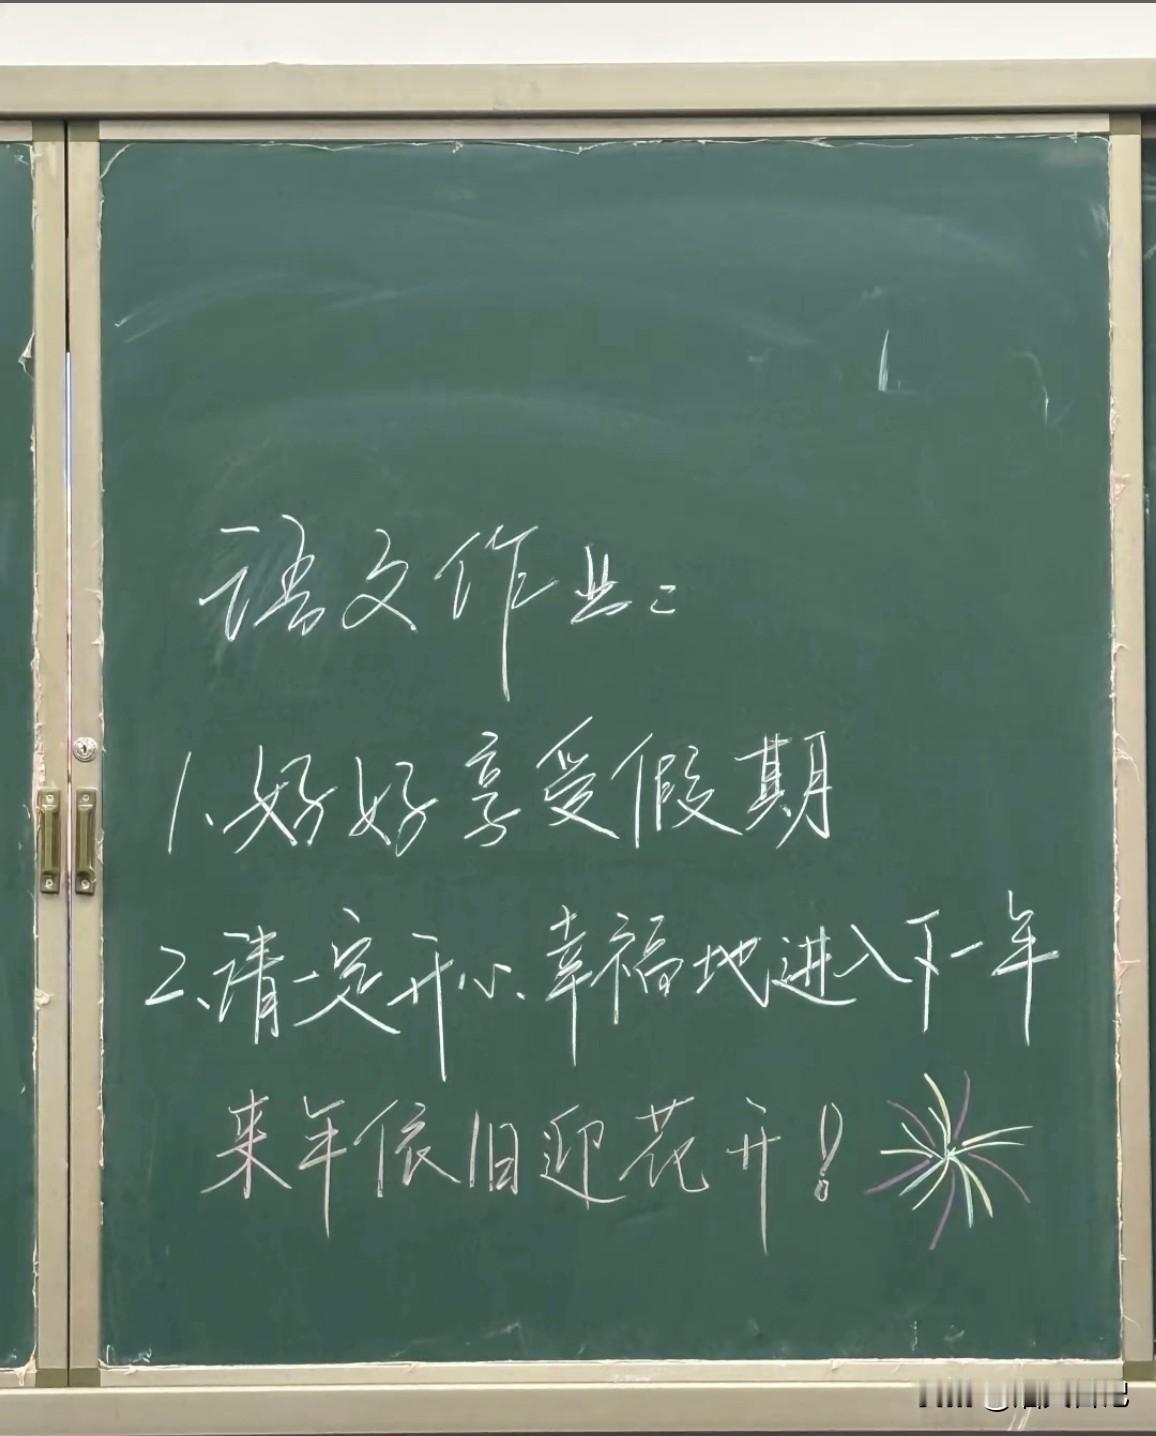 语文作业：
1、好好享受假期
2、请一定开心、幸福地进入下一年
来年依旧迎花开！